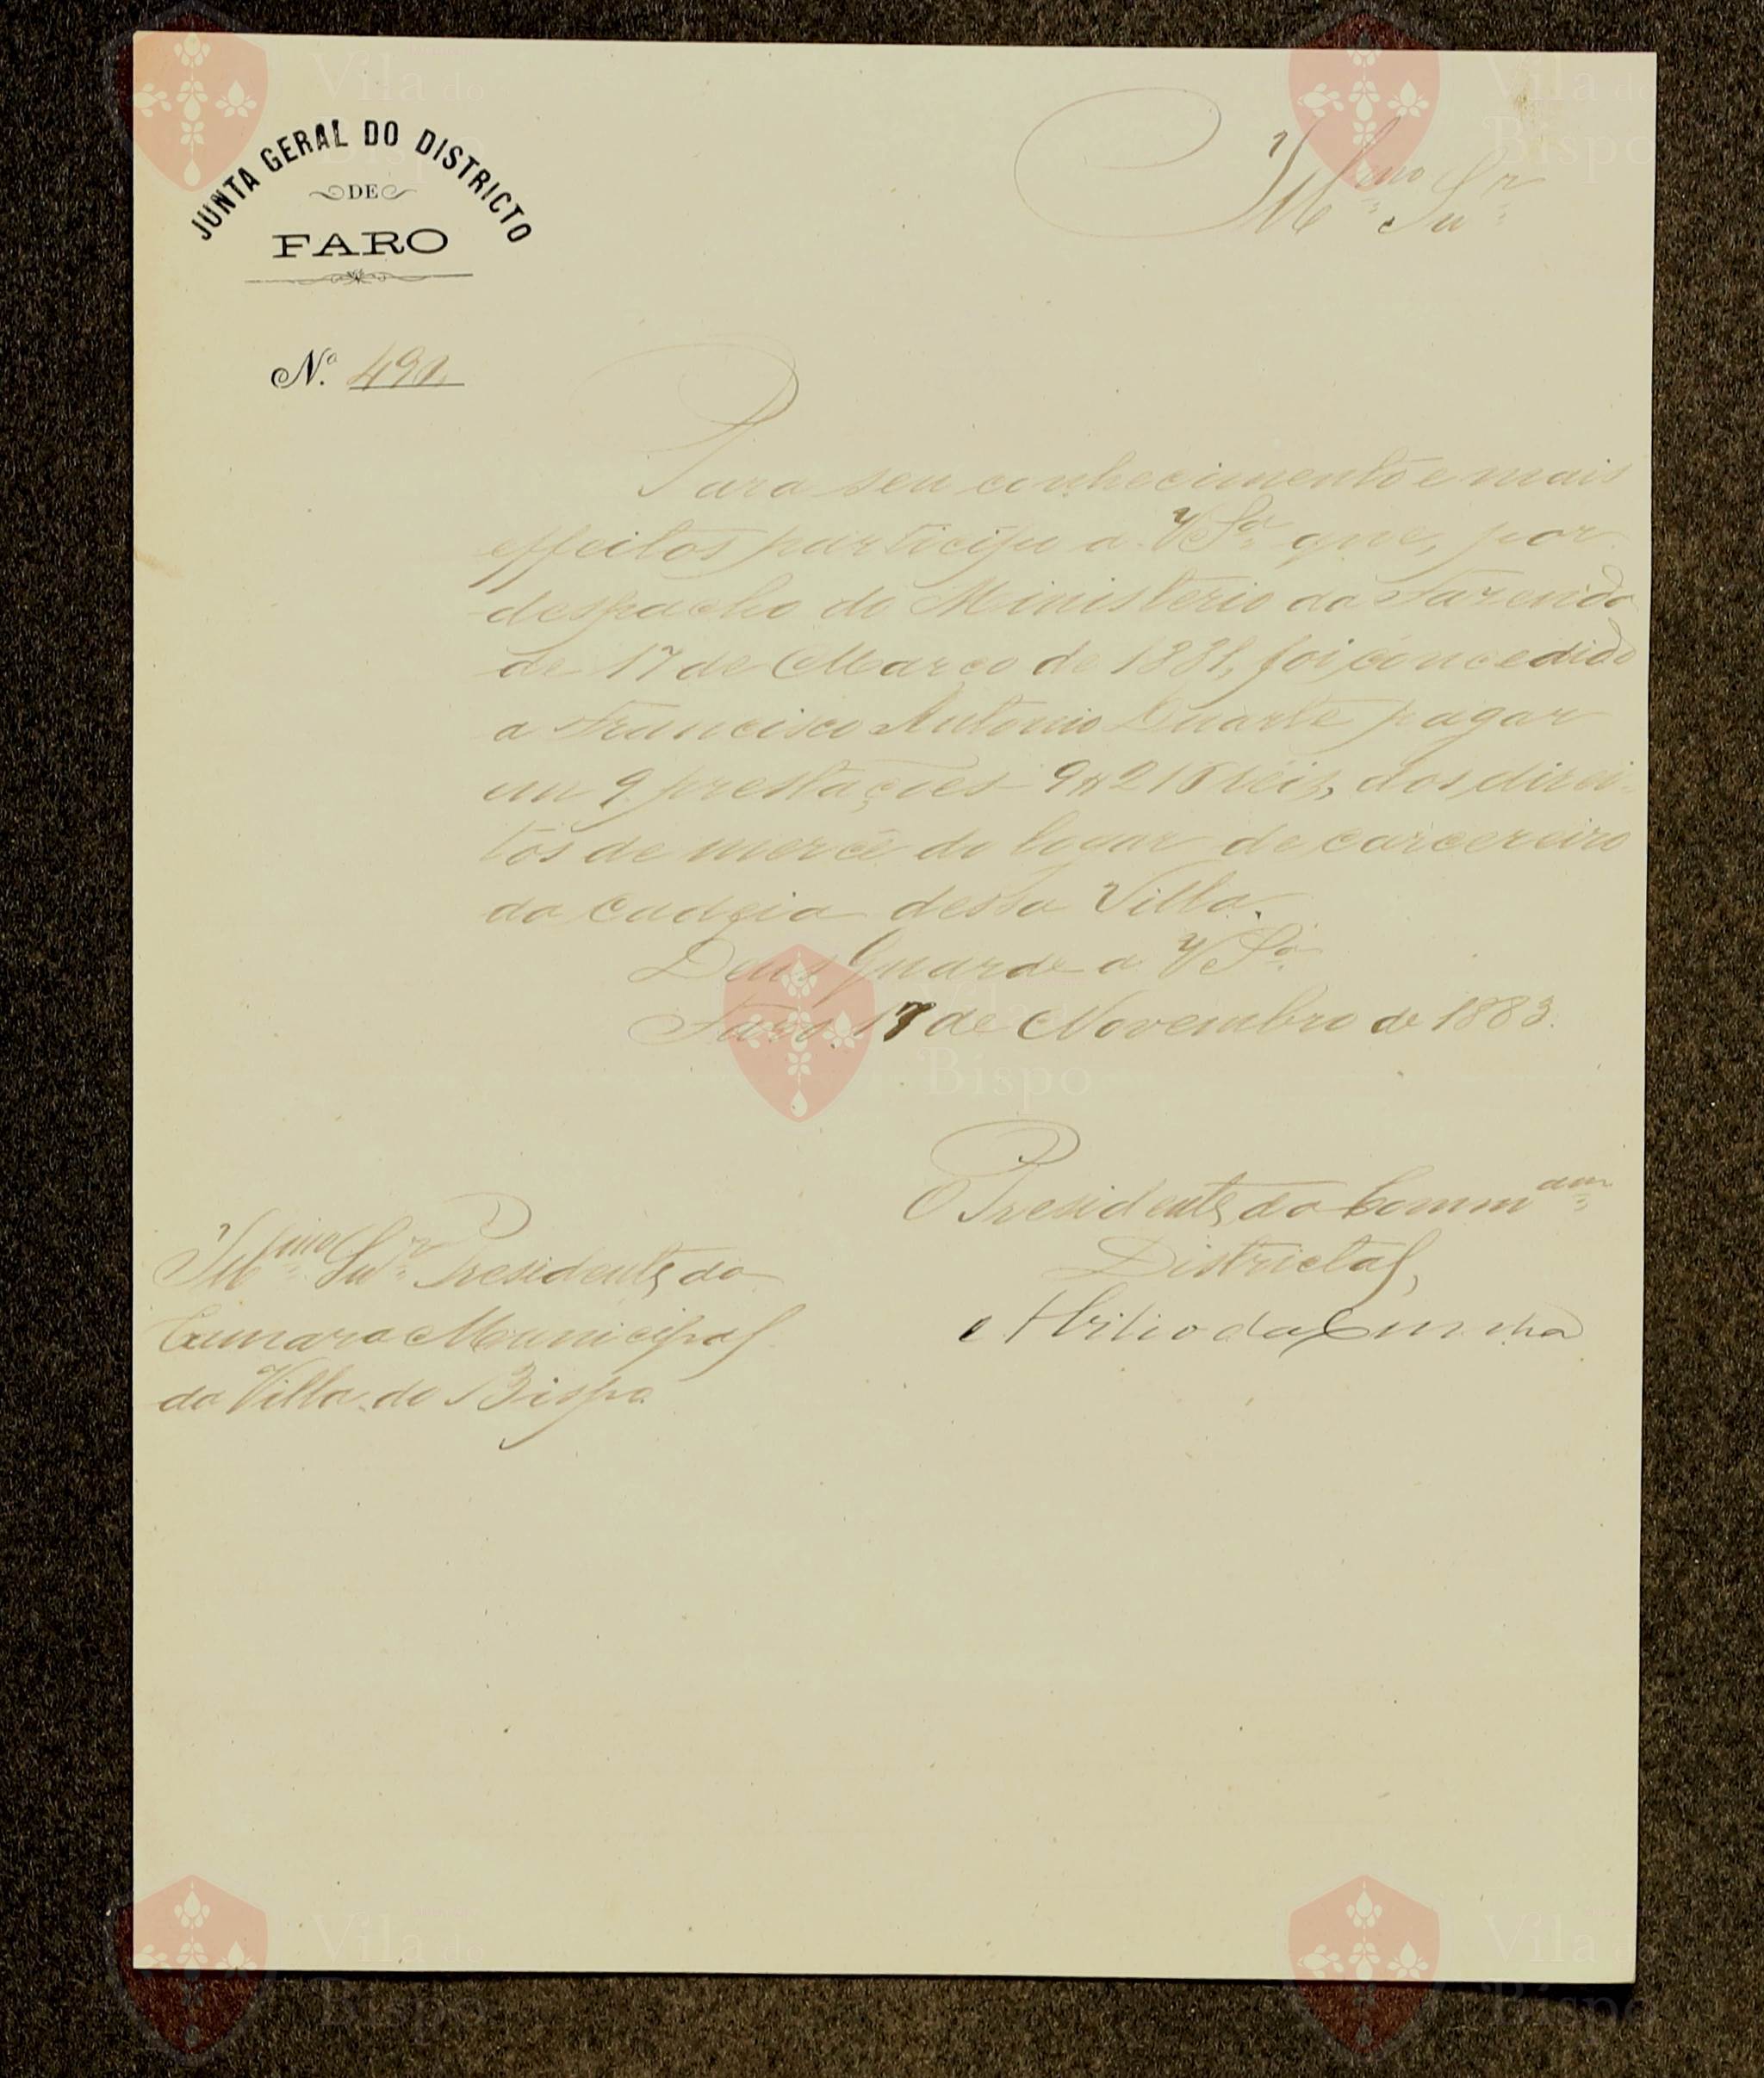 JUNTA GERAL DO DISTRICTO
DE
FARO
Nº 490
Illmo Snr
Para seu conhecimento e mais
effeitos participo a V Sª que, por
despacho do Ministerio da Fazenda
de 17 de Março de 1881, foi concedido
a Francisco Antonio Duarte pagar
em 9 prestações 9$216 reis, dos direi-
tos de mercê do logar de carcereiro
da Cadeia dessa Villa.
Deus Guarde a V Sª
Faro, 17 de Novembro de 1883.
O Presidente da Commam
Districtal,
Abilio da Cunha
Illmo Snr Presidente da
Camara Municipal
da Villa do Bispo
Vila do
Bispo